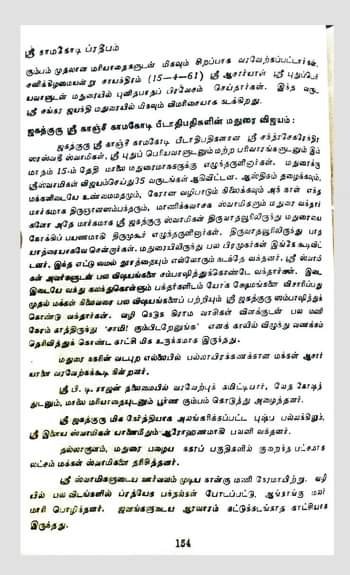 ஸ்ரீ காமகோடி ப்ரதீபம்
கும்பம் முதலான மரியாதைகளுடன் மிகவும் சிறப்பாக வரவேற்கப்பட்டார்கள்.
சனிக்கிழமையன்று சாயந்திரம் (15-4-61) ஸ்ரீ ஆசார்யாள் ஸ்ரீ புதுப்பெ
யவாளுடன் மதுரையில் புனிதமாகப் பிரவேசம் செய்தார்கள். இந்த வரு
ஸ்ரீ சங்கர ஜயந்தி மதுரையில் மிகவும் விமரிசையாக நடக்கிறது.
ஜகத்குரு ஸ்ரீ காஞ்சீ காமகோடி பீடாதிபதிகளின் மதுரை விஜயம்:
ஜகத்குரு ஸ்ரீ காஞ்சீ காமகோடி பீடாதிபதிகளான ஸ்ரீ சந்த்ரசேகரேந்திர
ஸரஸ்வதி ஸ்வாமிகள், ஸ்ரீ புதுப் பெரியவாளுடனும் மற்ற பரிவாரங்களுடனும் இம்
மாதம் 15-ம் தேதி மாலை மதுரைமாநகருக்கு எழுந்தருளினார்கள். மதுரைக்கு
ஸ்ரீஸ்வாமிகள் விஜயம்செய்து 35 வருடங்கள் ஆகிவிட்டன. ஆஸ்திகம் தழைக்கவும்,
மக்களிடையே உண்மைமதமும், கோன வழிபாடும் நிலைக்கவும் அந் நாள் எந்த
மார்க்கமாக திருஞானஸம்பந்தரும், மாணிக்கவாசக ஸ்வாமிகளும் மதுரை வந்தார்
களோ அதே மார்க்கமாக ஸ்ரீ ஜகத்குரு ஸ்வாமிகள் திருவாதவூரிலிருந்து மதுரையை
நோக்கிப் பயணமாகி திருமுகூர் எழுந்தருளினார்கள். திருவாதவூரிலிருந்து பாத
யாத்ரையாகவே சென்றார்கள். மதுரையிலிருந்து பல பிரமுகர்கள் இங்கே கூடிவிட்
டனர். இந்த எட்டு மைல் தூரத்தையும் எல்லோரும் நடந்தே வந்தனர். ஸ்ரீ ஸ்வாமி
கள் அவர்களுடன் பல விஷயங்களை சம்பாஷித்துக்கொண்டே வந்தார்கள். இடை
இடையே வந்து கலந்துகொள்ளும் பக்தர்களிடம் யோக க்ஷேமங்களை விசாரிப்பது
முதல் மக்கள் நிலைவரை பல விஷயங்களைப் பற்றியும் ஸ்ரீ ஜகத்குரு ஸம்பாஷித்துக்
கொண்டு வந்தார்கள். வழி நெடுக கிராம வாசிகள் விளக்குடன் பல மணி
நேரம் காத்திருந்து 'சாமி! கும்பிடறேனுங்க' எனக் காலில் விழுந்து வணக்கம்
தெரிவித்துக் கொண்ட காட்சி மிக உருக்கமாக இருந்தது.
மதுரை நகரின் வடபுற எல்லையில் பல்லாயிரக்கணக்கான மக்கள் ஆசார்
யாளை வரவேற்கக்கூடி நின்றனர்.
ஸ்ரீ பி. டி. ராஜன் தலைமையில் வரவேற்புக் கமிட்டியார், வேத கோஷத்
துடனும், மாலை மரியாதையுடனும் பூர்ண கும்பம் கொடுத்து அழைத்தனர்.
ஸ்ரீ ஜகத்குரு மிக நேர்த்தியாக அலங்கரிக்கப்பட்ட புஷ்ப பல்லக்கிலும்,
ஸ்ரீ இளைய ஸ்வாமிகள் யானைமீதும் ஆரோஹணமாகி பவனி வந்தனர்.
தல்லாகுளம், மதுரை பழைய நகரப் பகுதிகளில் குறைந்த பட்சமாக
லட்சம் மக்கள் ஸ்வாமிகளை தரிசித்தனர்.
ஸ்ரீ ஸ்வாமிகளுடைய ஊர்வலம் முடிய நான்கு மணி நேரமாயிற்று. வழி
யில் பல விடங்களில் ப்ரத்யேக பந்தல்கள் போடப்பட்டு, ஆங்காங்கு மலர்
மாரி பொழிந்தனர். ஜனங்களுடைய ஆரவாரம் கட்டுக்கடங்காத காட்சியாக
இருந்தது.
154